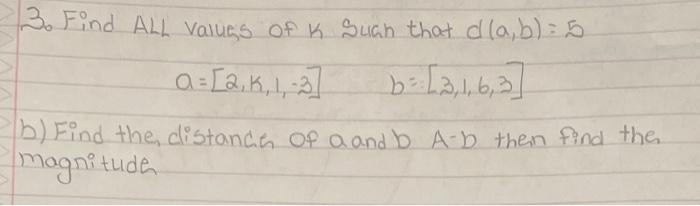 3. Find ALL values of K Such that d(a,b) = 5
a = [2, K, 1, -3] b = [3, 1, 6, 3]
b) Find the distance of a and b A-b then find the
magnitude